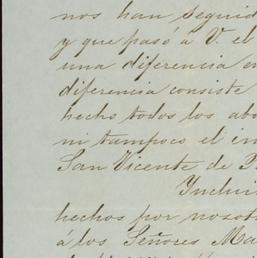 nos han seguid
y que pasó á V. el
una diferencia en
diferencia consiste
hecho todos los abo
ni tampoco el in
San Vicente de P.
Yncluí
hechos por nosot
á los Señores Ma